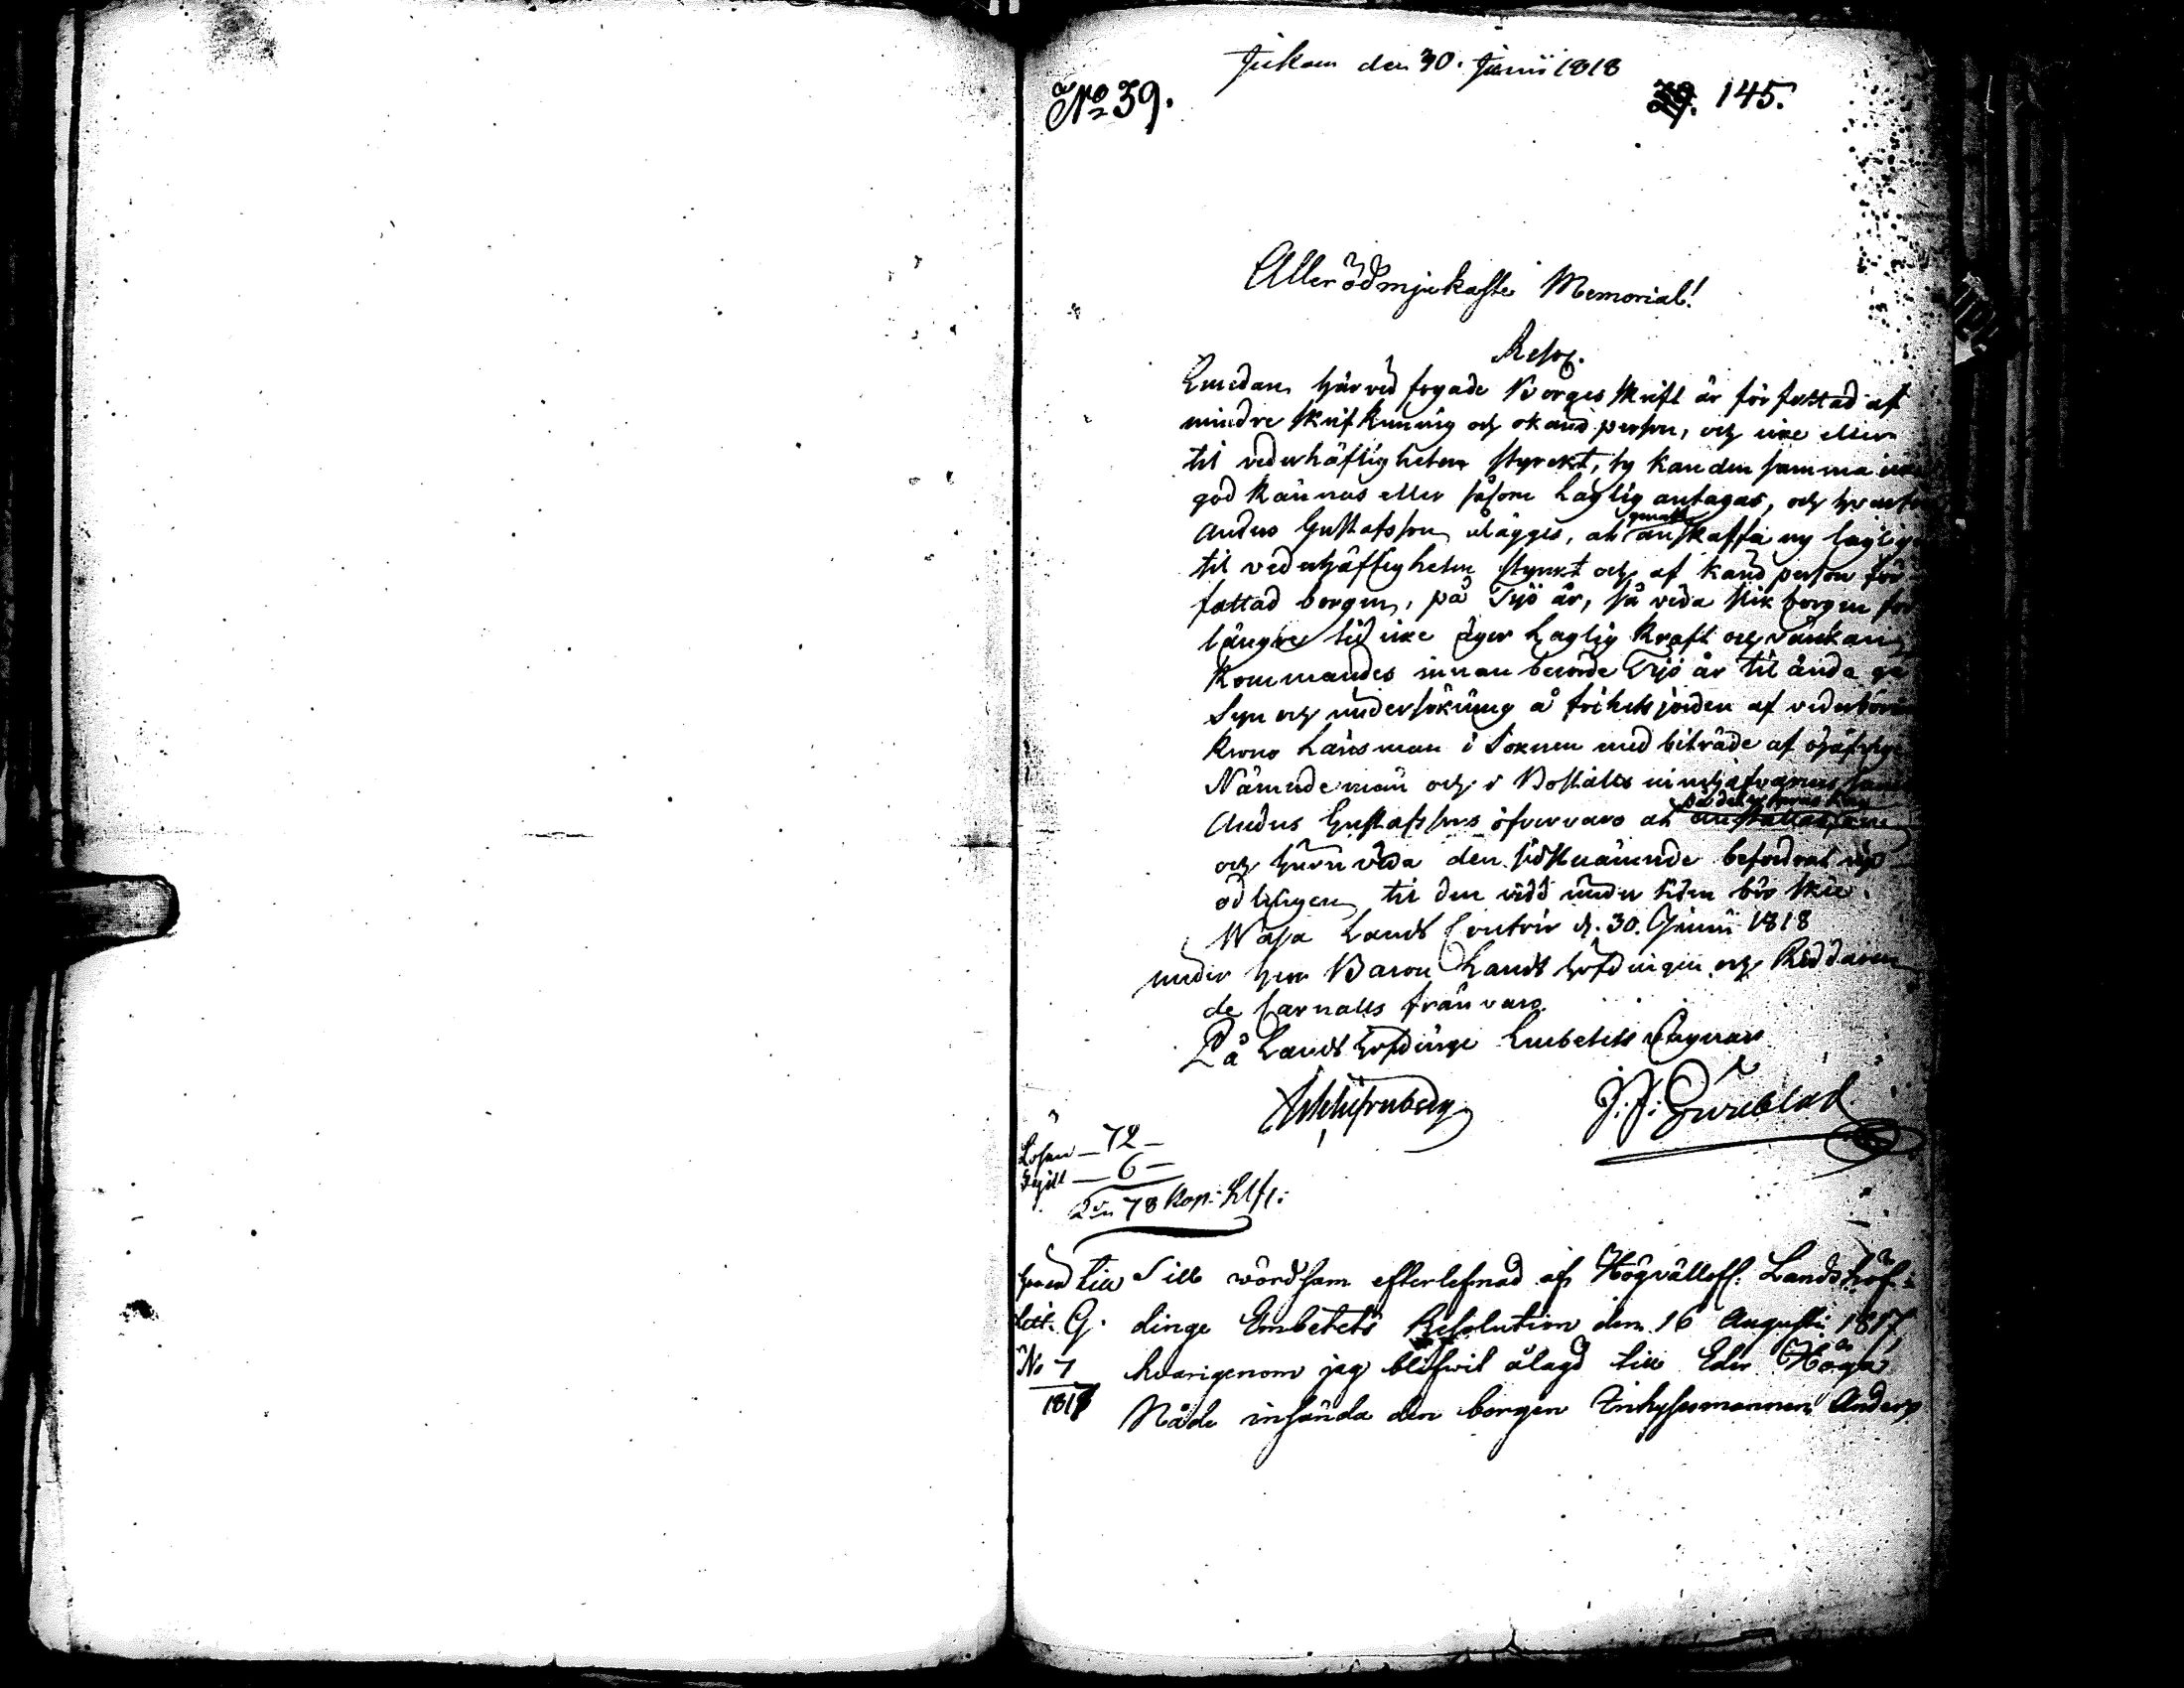 Inkom den 30. Junii 1818
No 39.
145.
Allerödmjukaste Memorial!
Resol.
Emedan härvid fogade Borgesskrift är författad af
mindre skrifkunnig och okänd person, och icke eller
til vederhäftigheten styrckt, ty kan den samma icke
godkännas eller såsom Laglig antagas, och
Anders Gustafsson ålägges, at anskaffa ny laglig
til vederhäftigheten styrkt och af känd person för
fattad borgen, på Tijo år, så vida slik borgen för
längre tid icke äger Laglig Kraft och värkan
kommandes innan berörde Tijo år til ända
Syn och undersökning å frihetsjorden af vederbörande
Krono Länsman i Soknen med biträde af ojäfvige
Nämndemän och i Bostälts innehafvarens samt
Anders Gustafssons öfvervaro at
och huru vida den sistnämnde befordrat upp
odlingen til den vidd under tiden bör ske.
Wasa Lands Contoir d. 30. Junii 1818
under Herr Baron Landshöfdingen och Riddaren
de Carnalls frånvaro.
På Landshöfdinge Embetets Vägnar
Lösen — 72 —
— 6 —
78 Kop: Slfr:
till Till wördsam efterlefnad af Högvällofl. Landshöf=
Litt. G. dinge Embetets Resolution den 16 Augusti 1817,
No 7 hvarigenom jag blifwit ålagd till Eder Höga
1818 Nåde insända den borgen Inhysesmannen Anders